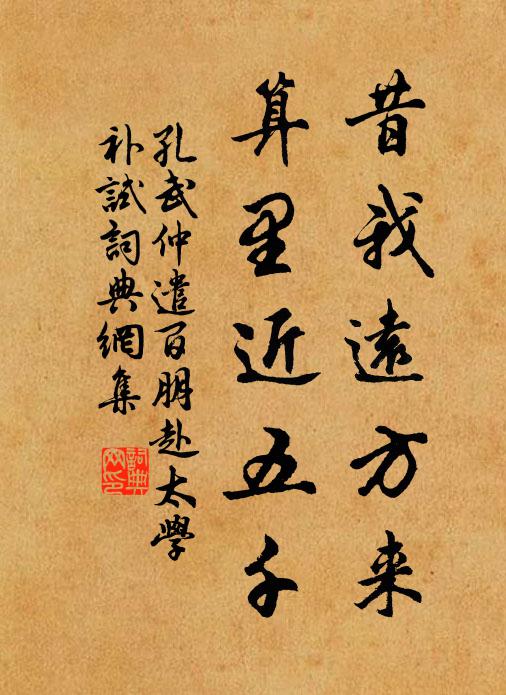 昔我遠方来
算里近五千
孔武仲遣百朋赴太學
补試詞典網集
詞典網印